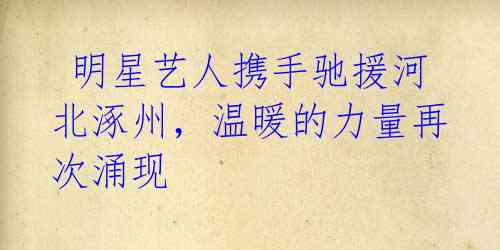 明星艺人携手驰援河
北涿州，温暖的力量再
次涌现